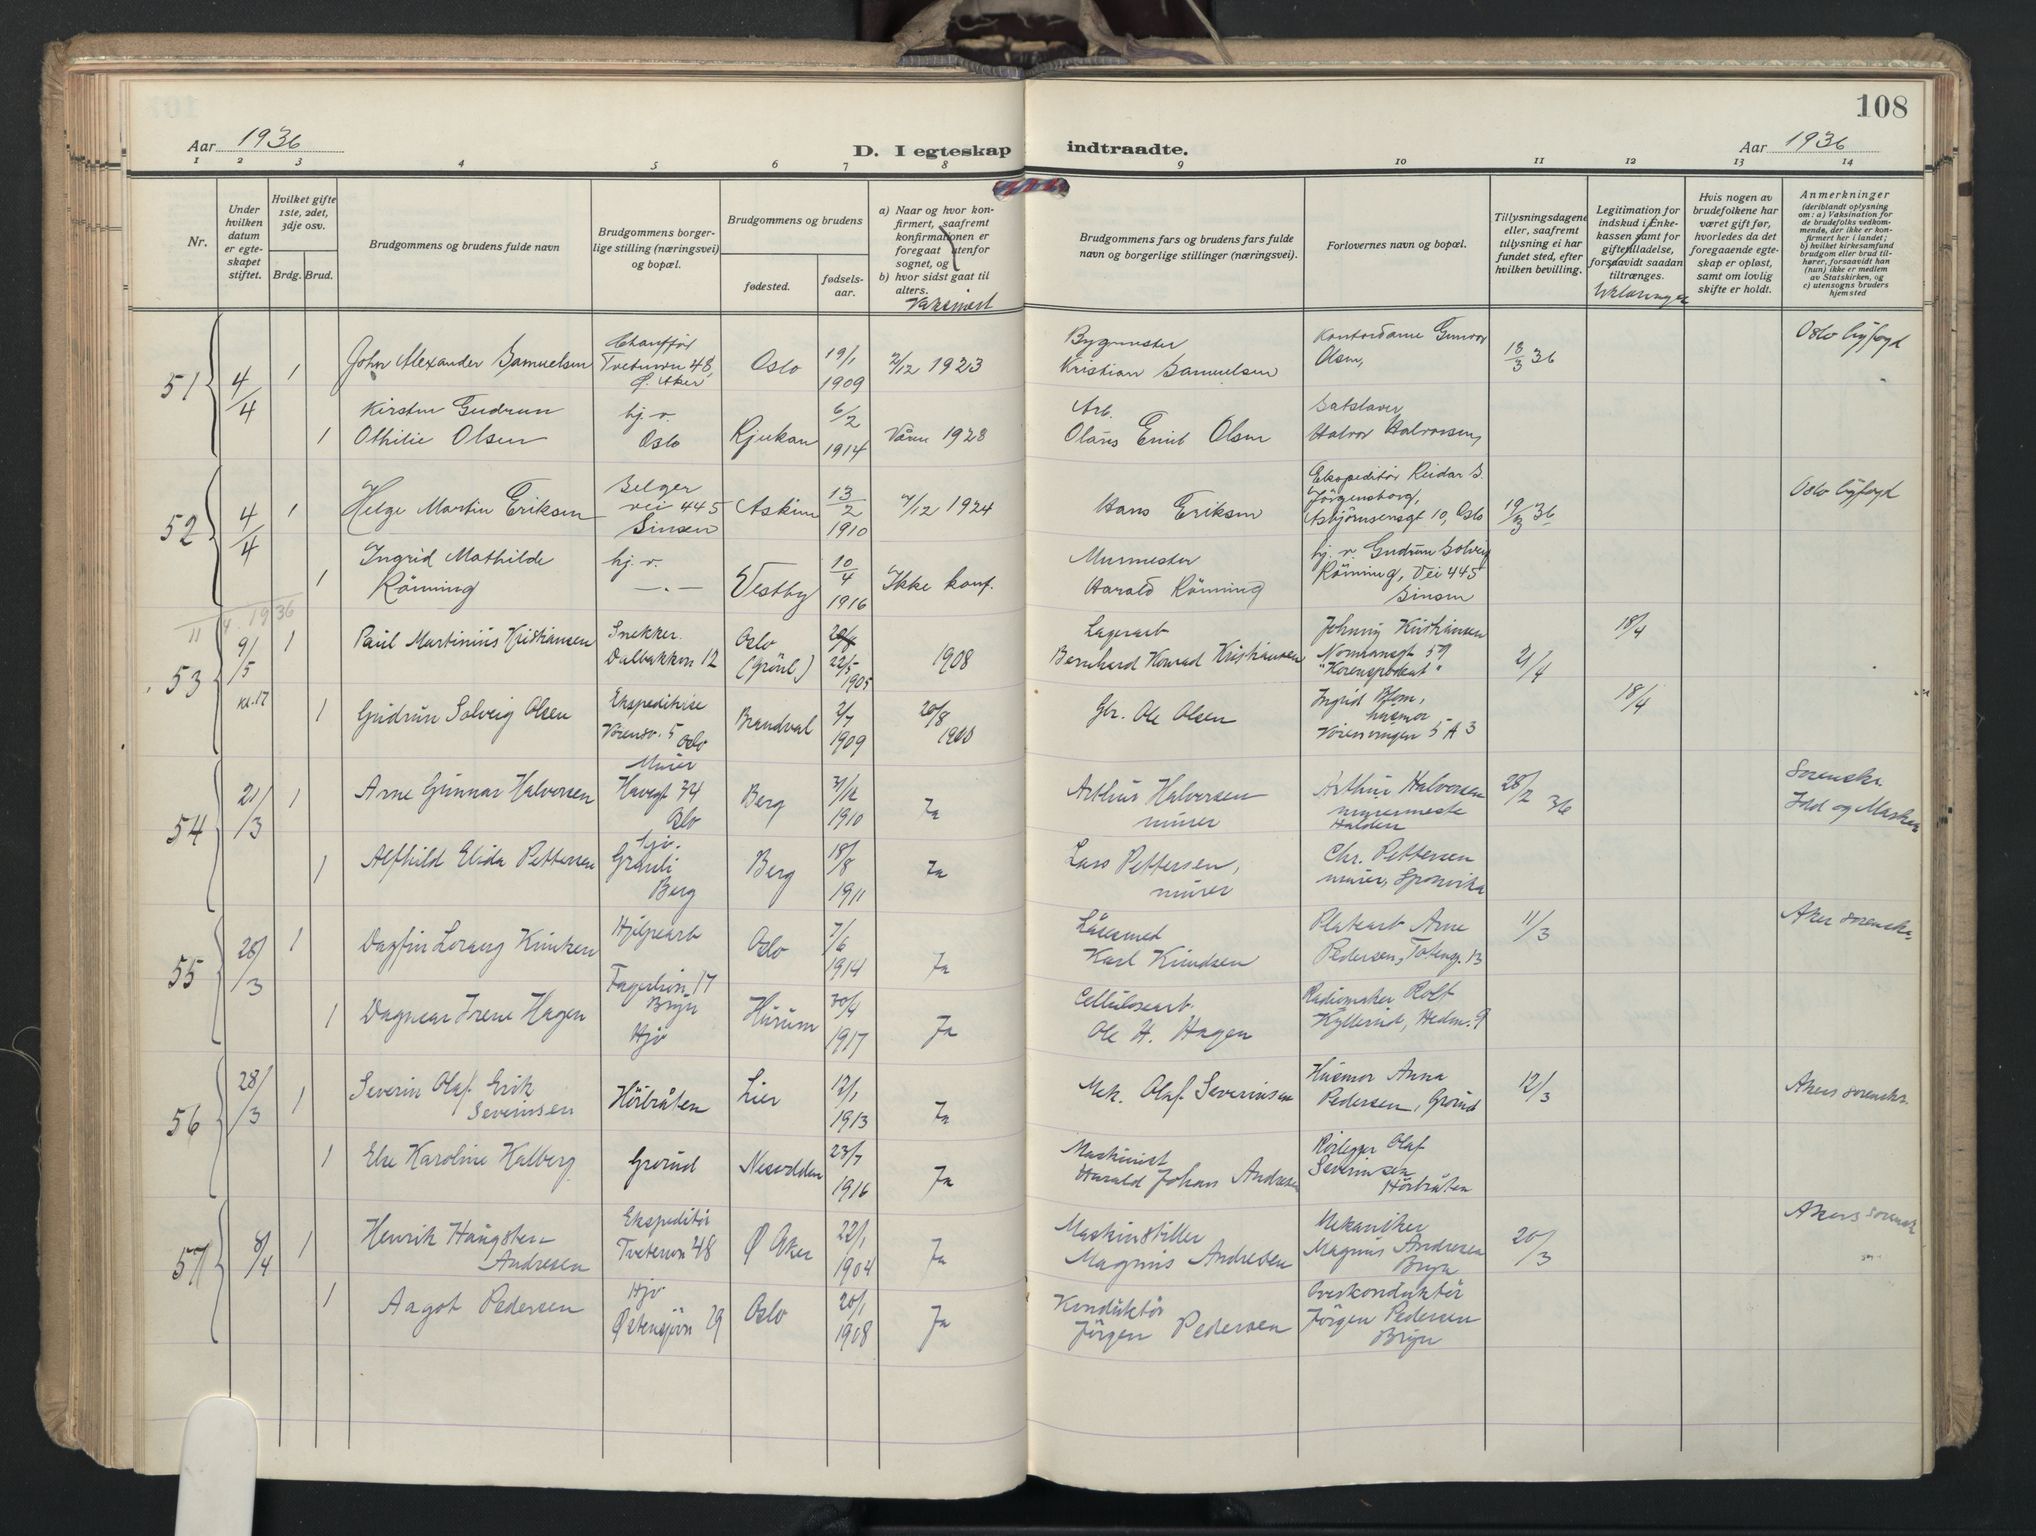 108
Aar 1936
D. I egteskap indtraadte.
Aar 1936
1 2 3 4 5 6 7 8 9 10 11 12 13 14
Nr.
Under hvilken datum er egteskapet stiftet.
Hvilket gifte 1ste, 2det, 3dje osv.
Brdg. Brud.
Brudgommens og brudens fulde navn
Brudgommens borgerlige stilling (næringsvei) og bopæl.
Brudgommens og brudens
fødested. fødselsaar.
a) Naar og hvor konfirmert, saafremt konfirmationen er foregaat utenfor sognet, og
b) hvor sidst gaat til alters.
Vaksinert
Brudgommens fars og brudens fars fulde navn og borgerlige stillinger (næringsvei).
Forlovernes navn og bopæl.
Tillysningsdagene eller, saafremt tillysning ei har fundet sted, efter hvilken bevilling.
Legitimation for indskud i Enkekassen samt for giftetilladelse, forsaavidt saadan tiltrænges.
Erklæringer
Hvis nogen av brudefolkene har været gift før, hvorledes da det foregaaende egteskap er opløst, samt om lovlig skifte er holdt.
Anmerkninger
(deriblandt oplysning om: a) Vaksination for de brudefolks vedkommende, der ikke er konfirmert her i landet; b) hvilket kirkesamfund brudgom eller brud tilhører, forsaavidt han (hun) ikke er medlem av Statskirken, og c) utensogns bruders hjemsted
51 4/4 1 John Alexander Samuelsen Chauffør Tvetenvn 48, Ø. Aker Oslo 19/1 1909 2/12 1923 Bygmester Kristian Samuelsen Kontordame Gunvor Olsen, 18/3 36 Oslo byfogd
1 Kirsten Gudrun Othilie Olsen hj. v. Oslo Rjukan 6/2 1914 Våren 1928 Arb. Olaus Emil Olsen Halvor Halvorsen,
52 4/4 1 Helge Martin Eriksen Selger vei 445 Sinsen Askim 13/2 1910 /12 1924 Hans Eriksen Ekspeditør Reidar S. Jørgensborg, Asbjørnsensgt 10, Oslo 19/3 36 Oslo byfogd
1 Ingrid Mathilde Rønning hj. v. — . — Vestby 10/4 1916 Ikke konf. Murmester Harald Rønning hj. v. Gudrun Solveig Rønning, Vei 445 Sinsen
11/4. 1936
53 9/5 kl. 17 1 Paul Martinius Kristiansen Snekker. Dalbakken 12 Oslo (Grönl.) 22/5 1905 1908 Lagerarb Bernhard Konrad Kristiansen Johnny Kristiansen Normansgt 59 21/4 18/4
1 Gudrun Solveig Olsen Ekspeditrise Vørensv. 5 Oslo Brandval 2/7 1909 20/8 1900 Gbr. Ole Olsen Ingrid Blom, husmor Vørensvingen 5 A 3 18/4
54 21/3 1 Arne Gunnar Halvorsen Murer Havegt 34 Oslo Berg 1910 Ja Arthur Halvorsen murer Arthur Halvorsen murermester Halden 28/2 36 Sorenskr. Idd og Marker
1 Alfhild Elida Pettersen hjv. Granli Berg Berg 18/8 1911 Ja Lars Pettersen, murer Chr. Pettersen murer, Sponvika
55 28/3 1 Dagfin Knudsen Hjelpearb Fagerlivn 17 Bryn Oslo 7/6 1914 Ja Låsesmed Karl Knudsen Platearb Arne Pedersen, Totengt. 13 11/3 Aker sorenskr.
1 Dagmar Irene Hagen Hjv Hurum 30/4 1917 Ja Cellulosearb. Ole H. Hagen Radiomaker Rolf Kyllerud, Hedm. 9
56 28/3 1 Severin Olaf Erik Severinsen Hörbråten Lier 12/1 1913 Ja Mek. Olaf Severinsen Husmor Anna Pedersen, Grorud 12/3 Akers sorenskr.
1 Else Karoline Kalberg Grorud Nesodden 23/7 1916 Ja Maskinist Harald Johan Andresen Rörlegger Olaf Severinsen Hörbråten
57 8/4 1 Henrik Haugsten Andresen Ekspeditör Tvetenvn 48 Ø Aker 22/1 1904 Ja Maskinstiller Magnus Andresen Mekaniker Magnus Andresen Bryn 20/3 Akers sorensk
1 Aagot Pedersen Hjv Østensjøvn 29 Oslo 20/1 1908 Ja Konduktör Jörgen Pedersen Overkonduktör Jörgen Pedersen Bryn